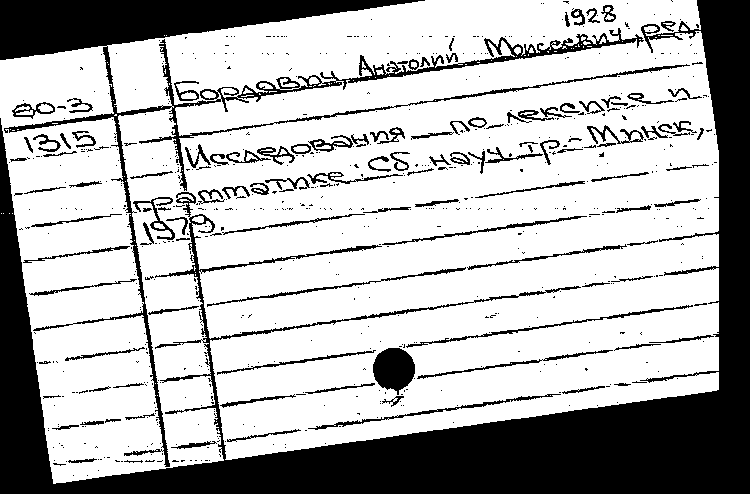 1928
Бордович, Анатолий Моисеевич, ред.
80-3
1315
Исследования по лексике и
грамматике: Сб. науч. тр.- Минск,
1979.